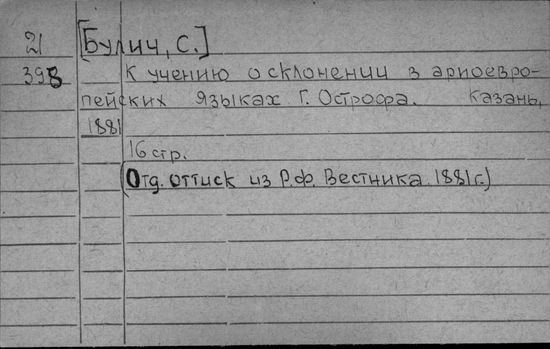 21 [Булич, С.]
398 К учению о склонении в ариоевро-
пейских языках Г. Острофа. Казань,
1881
16 стр.
(Отд. оттиск из Р.Ф. Вестника 1881 г.)